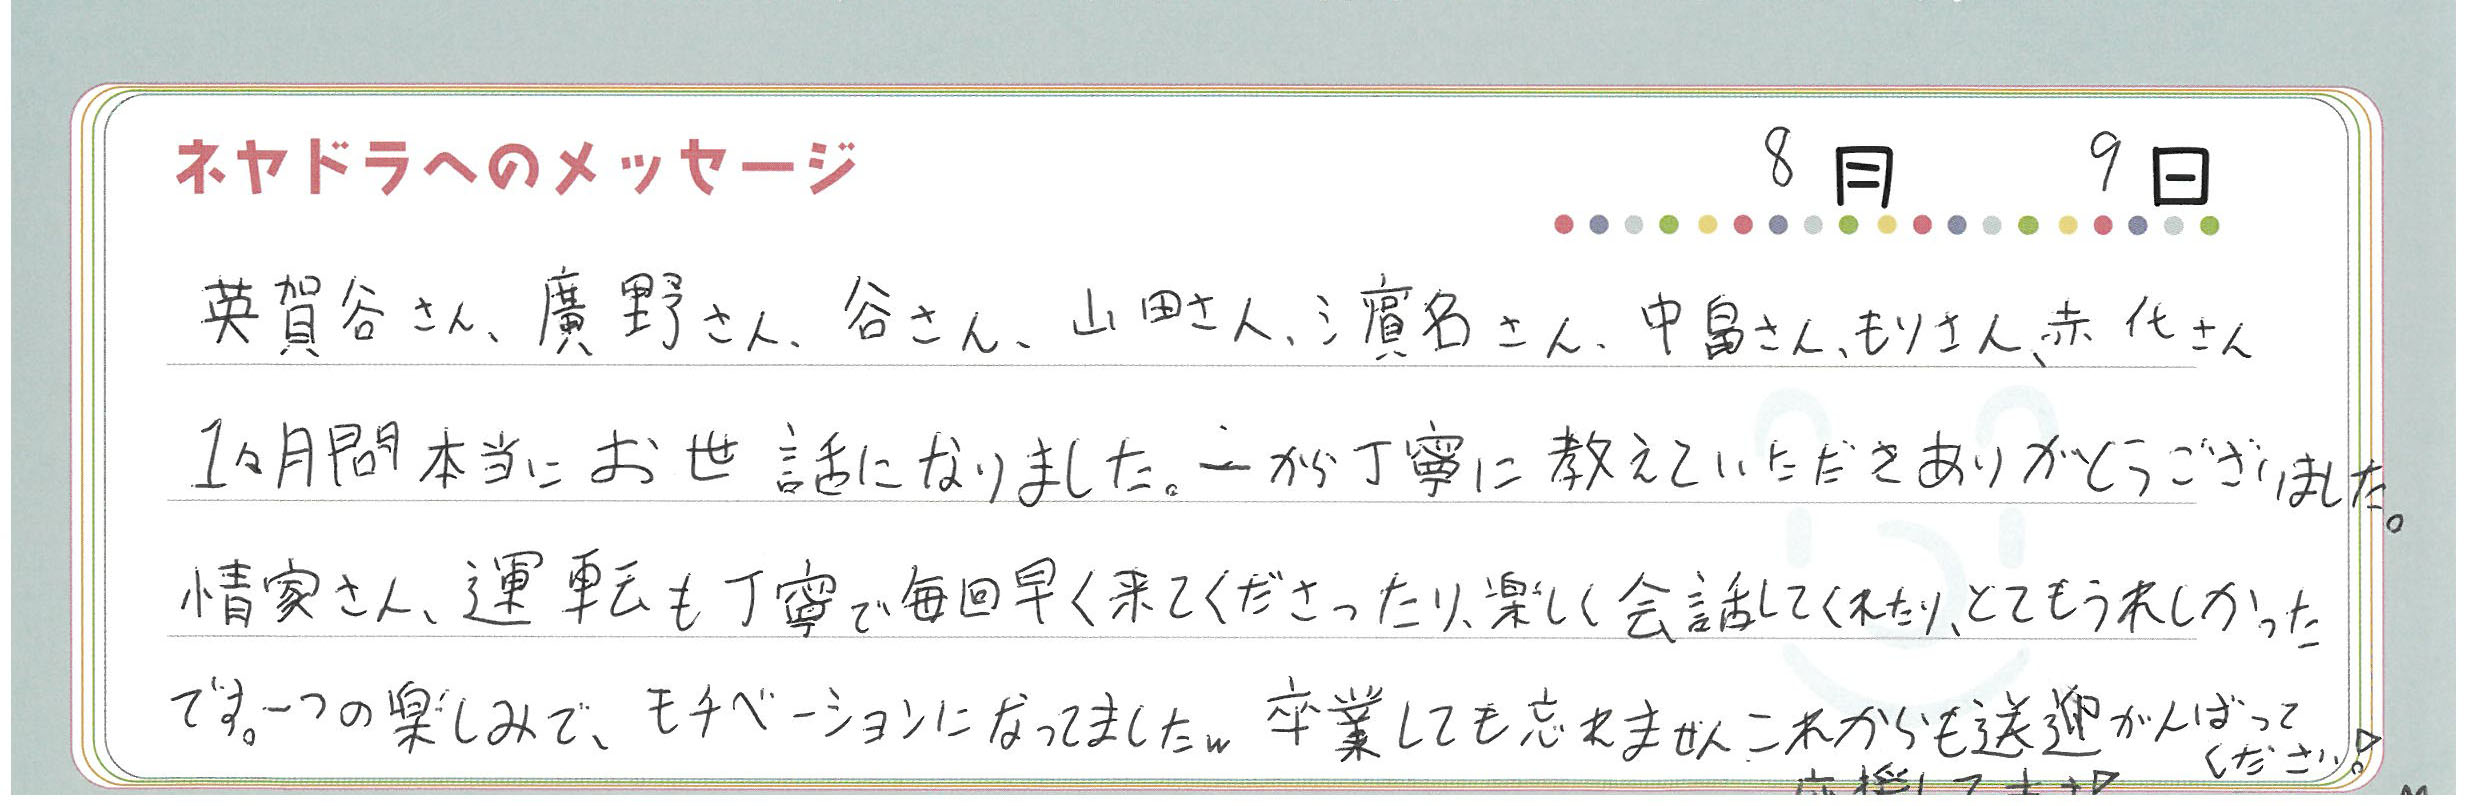 ネヤドラへのメッセージ
8月 9日
英賀谷さん、廣野さん、谷さん、山田さん、濱名さん、中畠さん、もりさん、赤化さん
1ヶ月間本当にお世話になりました。一から丁寧に教えていただきありがとうございました。
情家さん、運転も丁寧で毎回早く来てくださったり、楽しく会話してくれたり、とてもうれしかった
です。一つの楽しみで、モチベーションになってましたw 卒業しても忘れませんこれからも送迎がんばって
ください!
応援してます!